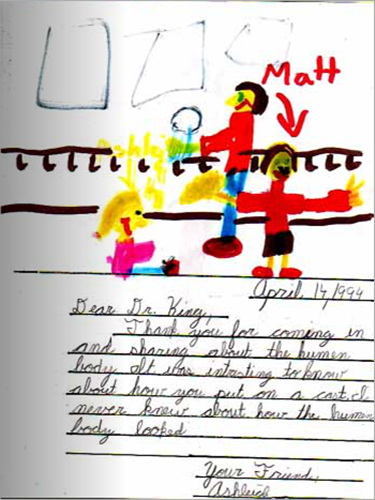 Matt
Ashleigh
April 14, 1994
Dear Dr. King,
Thank you for coming in
and sharing about the humen
body it was intrating to know
about how you put on a cast. I
never knew about how the humen
body looked
Your Friend,
Ashleigh